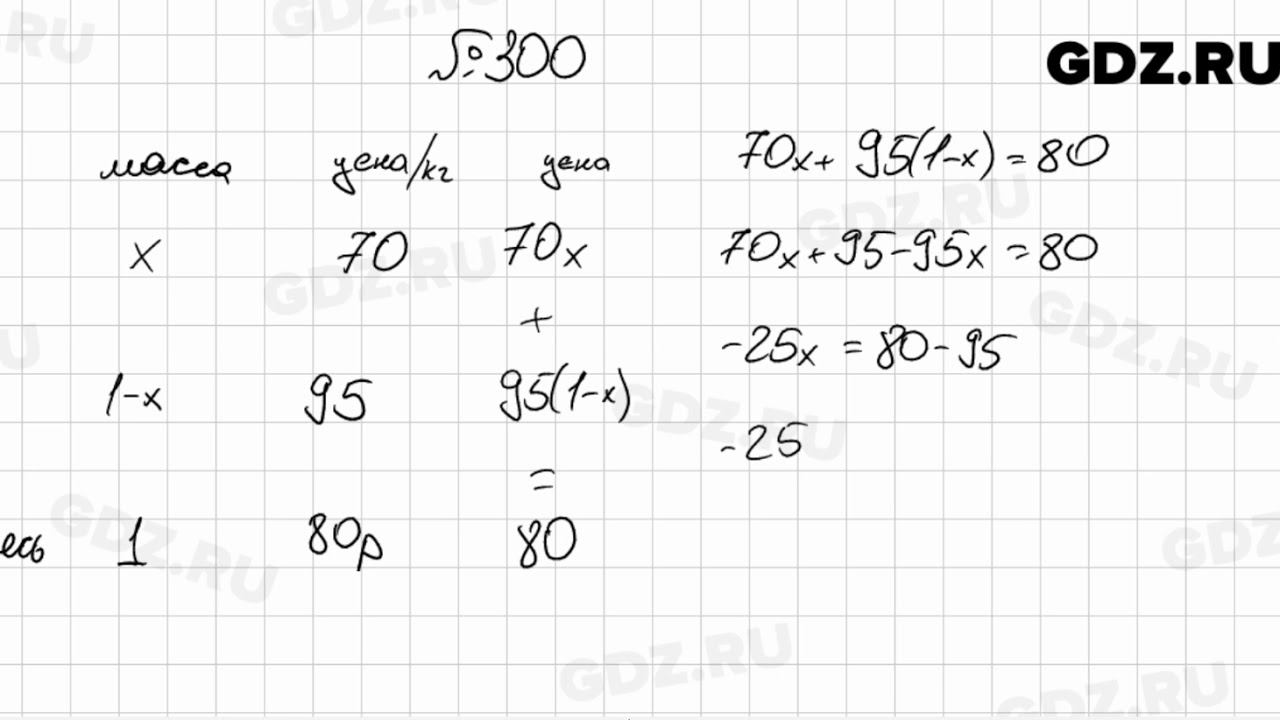 №300
GDZ.RU
масса цена/кг цена
x 70 70x
+
1-x 95 95(1-x)
=
есь 1 80р 80
70x+ 95(1-x) = 80
70x+95-95x = 80
-25x = 80-95
-25